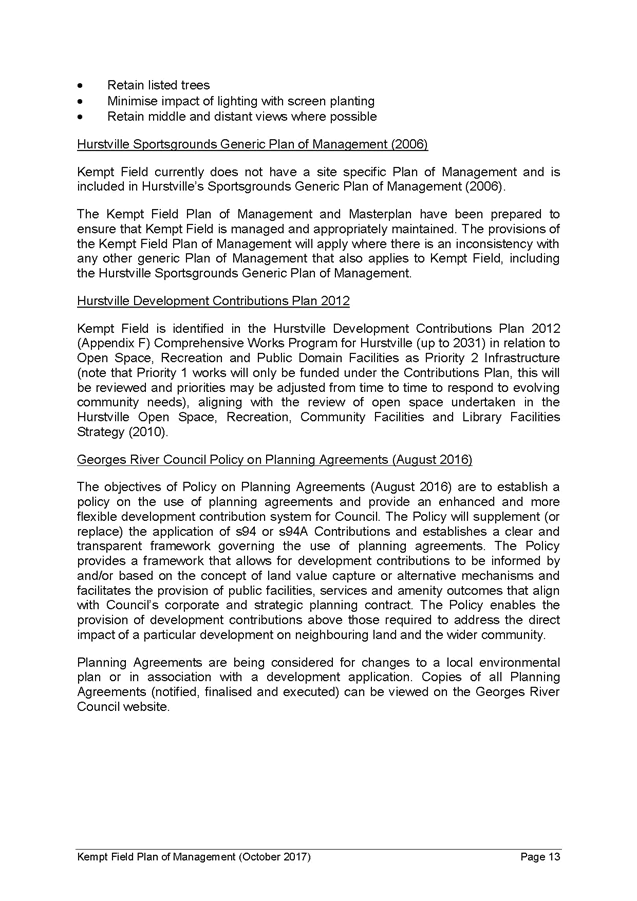 • Retain listed trees
• Minimise impact of lighting with screen planting
• Retain middle and distant views where possible
Hurstville Sportsgrounds Generic Plan of Management (2006)
Kempt Field currently does not have a site specific Plan of Management and is
included in Hurstville's Sportsgrounds Generic Plan of Management (2006).
The Kempt Field Plan of Management and Masterplan have been prepared to
ensure that Kempt Field is managed and appropriately maintained. The provisions of
the Kempt Field Plan of Management will apply where there is an inconsistency with
any other generic Plan of Management that also applies to Kempt Field, including
the Hurstville Sportsgrounds Generic Plan of Management.
Hurstville Development Contributions Plan 2012
Kempt Field is identified in the Hurstville Development Contributions Plan 2012
(Appendix F) Comprehensive Works Program for Hurstville (up to 2031) in relation to
Open Space, Recreation and Public Domain Facilities as Priority 2 Infrastructure
(note that Priority 1 works will only be funded under the Contributions Plan, this will
be reviewed and priorities may be adjusted from time to time to respond to evolving
community needs), aligning with the review of open space undertaken in the
Hurstville Open Space, Recreation, Community Facilities and Library Facilities
Strategy (2010).
Georges River Council Policy on Planning Agreements (August 2016)
The objectives of Policy on Planning Agreements (August 2016) are to establish a
policy on the use of planning agreements and provide an enhanced and more
flexible development contribution system for Council. The Policy will supplement (or
replace) the application of s94 or s94A Contributions and establishes a clear and
transparent framework governing the use of planning agreements. The Policy
provides a framework that allows for development contributions to be informed by
and/or based on the concept of land value capture or alternative mechanisms and
facilitates the provision of public facilities, services and amenity outcomes that align
with Council's corporate and strategic planning contract. The Policy enables the
provision of development contributions above those required to address the direct
impact of a particular development on neighbouring land and the wider community.
Planning Agreements are being considered for changes to a local environmental
plan or in association with a development application. Copies of all Planning
Agreements (notified, finalised and executed) can be viewed on the Georges River
Council website.
Kempt Field Plan of Management (October 2017) Page 13